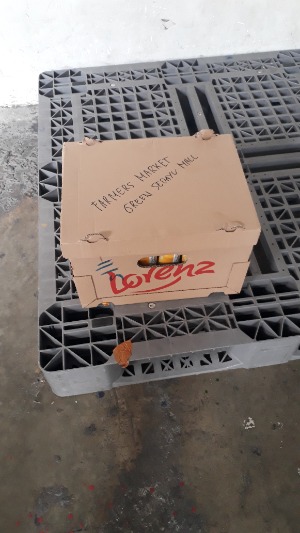 FARMERS MARKET
GREEN SEDAYU MALL
Lorenz